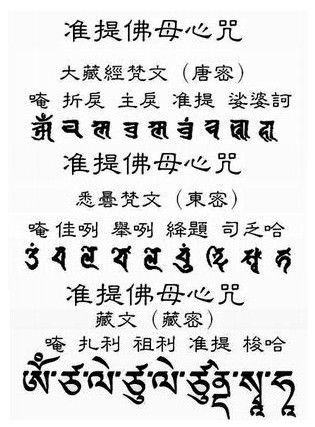 准提佛母心咒
大藏經梵文（唐密）
唵 折戾 主戾 准提 娑婆訶
准提佛母心咒
悉曇梵文（東密）
唵 佳咧 舉咧 絳題 司乏哈
准提佛母心咒
藏文（藏密）
唵 扎利 祖利 准提 梭哈
ཨོཾ་ཙ་ལེ་ཙུ་ལེ་ཙུནྡེ་སྭཱ་ཧཱ